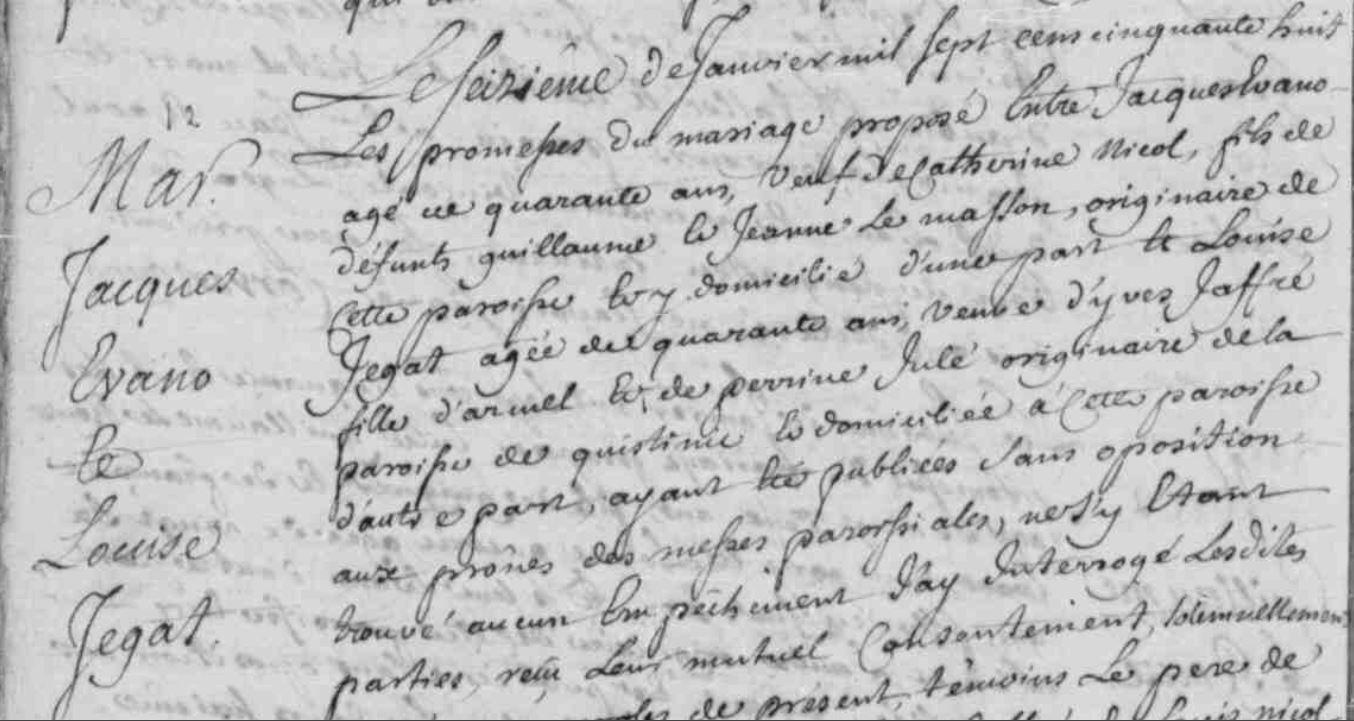 12
Mar.
Jacques
Evano
et
Louise
Jegat.
Le seizième de Janvier mil sept cens cinquante huit
Les promesses du mariage proposé Entre Jacques Evano
agé de quarante ans, veuf de Catherine Nicol, fils de
défunts guillaume et Jeanne Le masson, originaire de
Cette paroisse et y domicilié d'une part et Louise
Jegat agée de quarante ans, veuve d'yves Jaffré
fille d'armel et de perrine Julé originaire de la
paroisse de quistinic et domiciliée à Cette paroisse
d'autre part, ayant été publiées sans oposition
aux prônes des messes paroissiales, ne s'y Etant
trouvé aucun Empêchement J'ay Interrogé Lesdites
parties, reçu Leur mutuel Consentement, solemnellement
de présent, témoins Le pere de
nicol